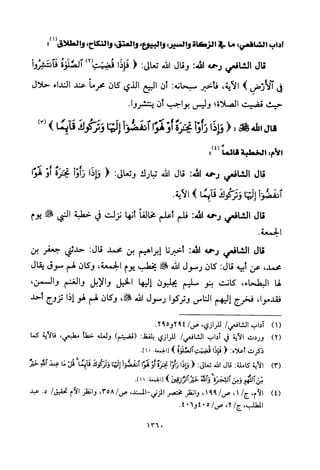 آداب الشافعي: ما في الزكاة والسير، والبيوع، والعتق، والنكاح، والطلاق(١):
قال الشافعي رحمه الله: وقال الله تعالى: ﴿ فَإِذَا قُضِيَتِ(٢) الصَّلَوٰةُ فَانتَشِرُوا۟
فِي الْأَرْضِ ﴾ الآية، فأخبر سبحانه: أن البيع الذي كان محرماً عند النداء حلال
حيث قضيت الصلاة؛ وليس بواجب أن ينتشروا.
قال الله ﷻ: ﴿ وَإِذَا رَأَوْا۟ تِجَٰرَةً أَوْ لَهْوًا انفَضُّوٓا۟ إِلَيْهَا وَتَرَكُوكَ قَآئِمًا ﴾(٣)
الأم: الخطبة قائماً(٤):
قال الشافعي رحمه الله: قال الله تبارك وتعالى: ﴿ وَإِذَا رَأَوْا۟ تِجَٰرَةً أَوْ لَهْوًا
انفَضُّوٓا۟ إِلَيْهَا وَتَرَكُوكَ قَآئِمًا ﴾ الآية.
قال الشافعي رحمه الله: فلم أعلم مخالفاً أنها نزلت في خطبة النبي ﷺ يوم
الجمعة.
قال الشافعي رحمه الله: أخبرنا إبراهيم بن محمد قال: حدثني جعفر بن
محمد، عن أبيه قال: كان رسول الله ﷺ يخطب يوم الجمعة، وكان لهم سوق يقال
لها البطحاء، كانت بنو سليم يجلبون إليها الخيل والإبل والغنم والسمن،
فقدموا، فخرج إليهم الناس وتركوا رسول الله ﷺ، وكان لهم لهو إذا تزوج أحد
(١) آداب الشافعي/ للرازي، ص/ ٢٩٤ و٢٩٥.
(٢) وردت الآية في آداب الشافعي/ للرازي بلفظ: (قضيتم) ولعله خطأ مطبعي، فالآية كما
ذكرت أعلاه: ﴿ فَإِذَا قُضِيَتِ الصَّلَوٰةُ ﴾ [الجمعة: ١٠].
(٣) الآية كاملة: قال الله تعالى: ﴿ وَإِذَا رَأَوْا۟ تِجَٰرَةً أَوْ لَهْوًا انفَضُّوٓا۟ إِلَيْهَا وَتَرَكُوكَ قَآئِمًا قُلْ مَا عِندَ اللَّهِ خَيْرٌ
مِّنَ اللَّهْوِ وَمِنَ التِّجَٰرَةِ وَاللَّهُ خَيْرُ الرَّٰزِقِينَ ﴾ [الجمعة: ١١].
(٤) الأم، ج/ ١، ص/ ١٩٩، وانظر مختصر المزني-المسند، ص/ ٣٥٨، وانظر الأم تحقيق/ د. عبد
المطلب، ج/ ٢، ص/ ٤٠٥ و٤٠٦.
١٣٦٠